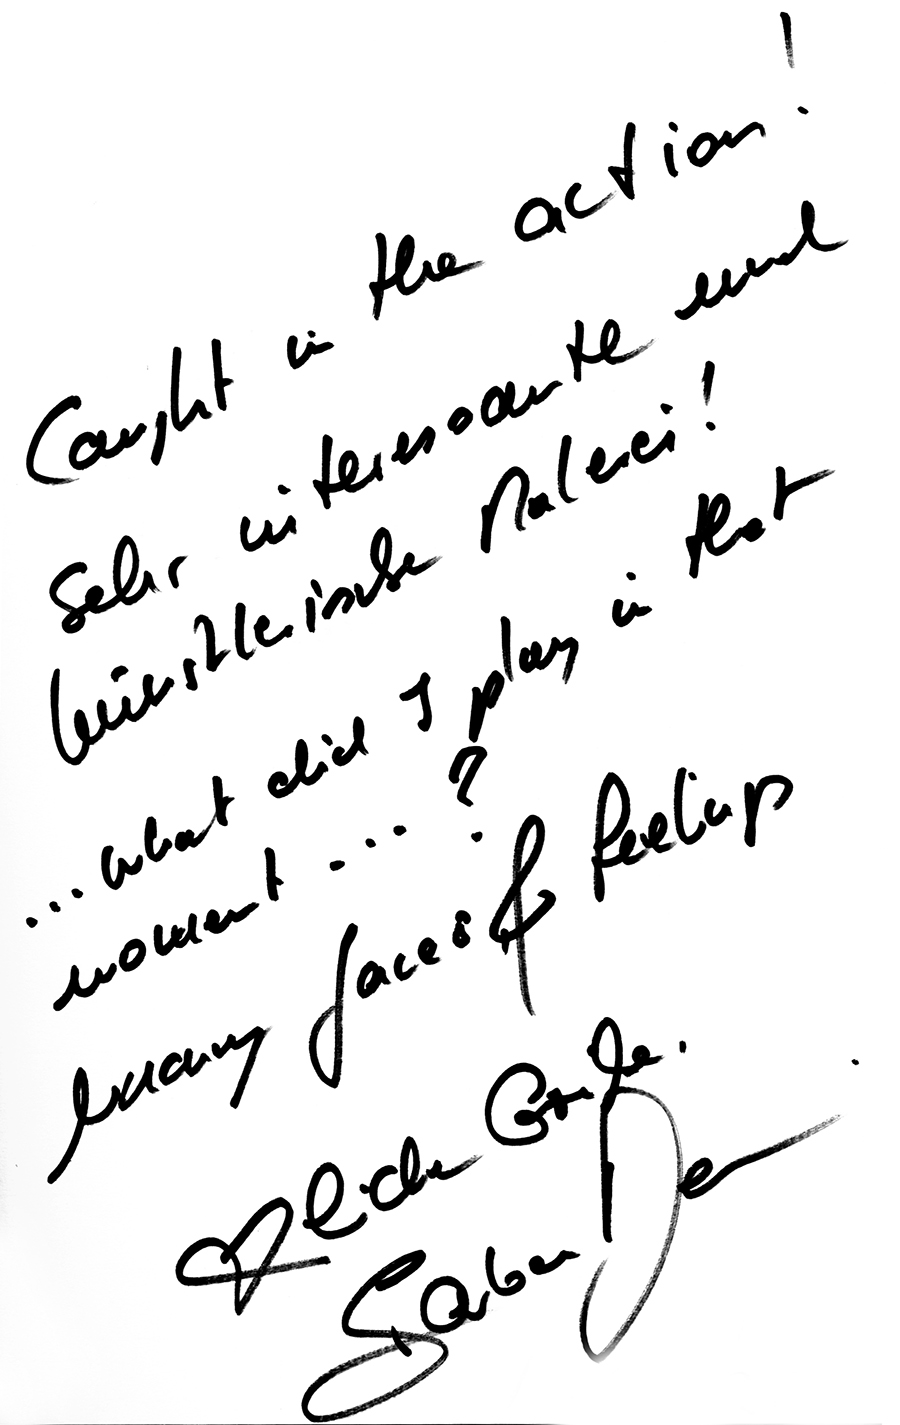 Caught in the action!
Sehr interessante und
künstlerische Malerei!
...what did I play in that
moment ...?
many faces & feelings
liche Grüße.